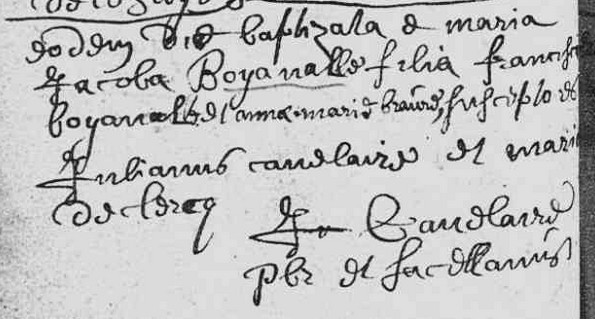 eodem die baptizata e maria
Jacoba Boyavalle filia francisci
boyavalle et annæ mariæ susceptores
Julianus candlaire et maria
de clercq J Candlaire
pbr et sacellanus